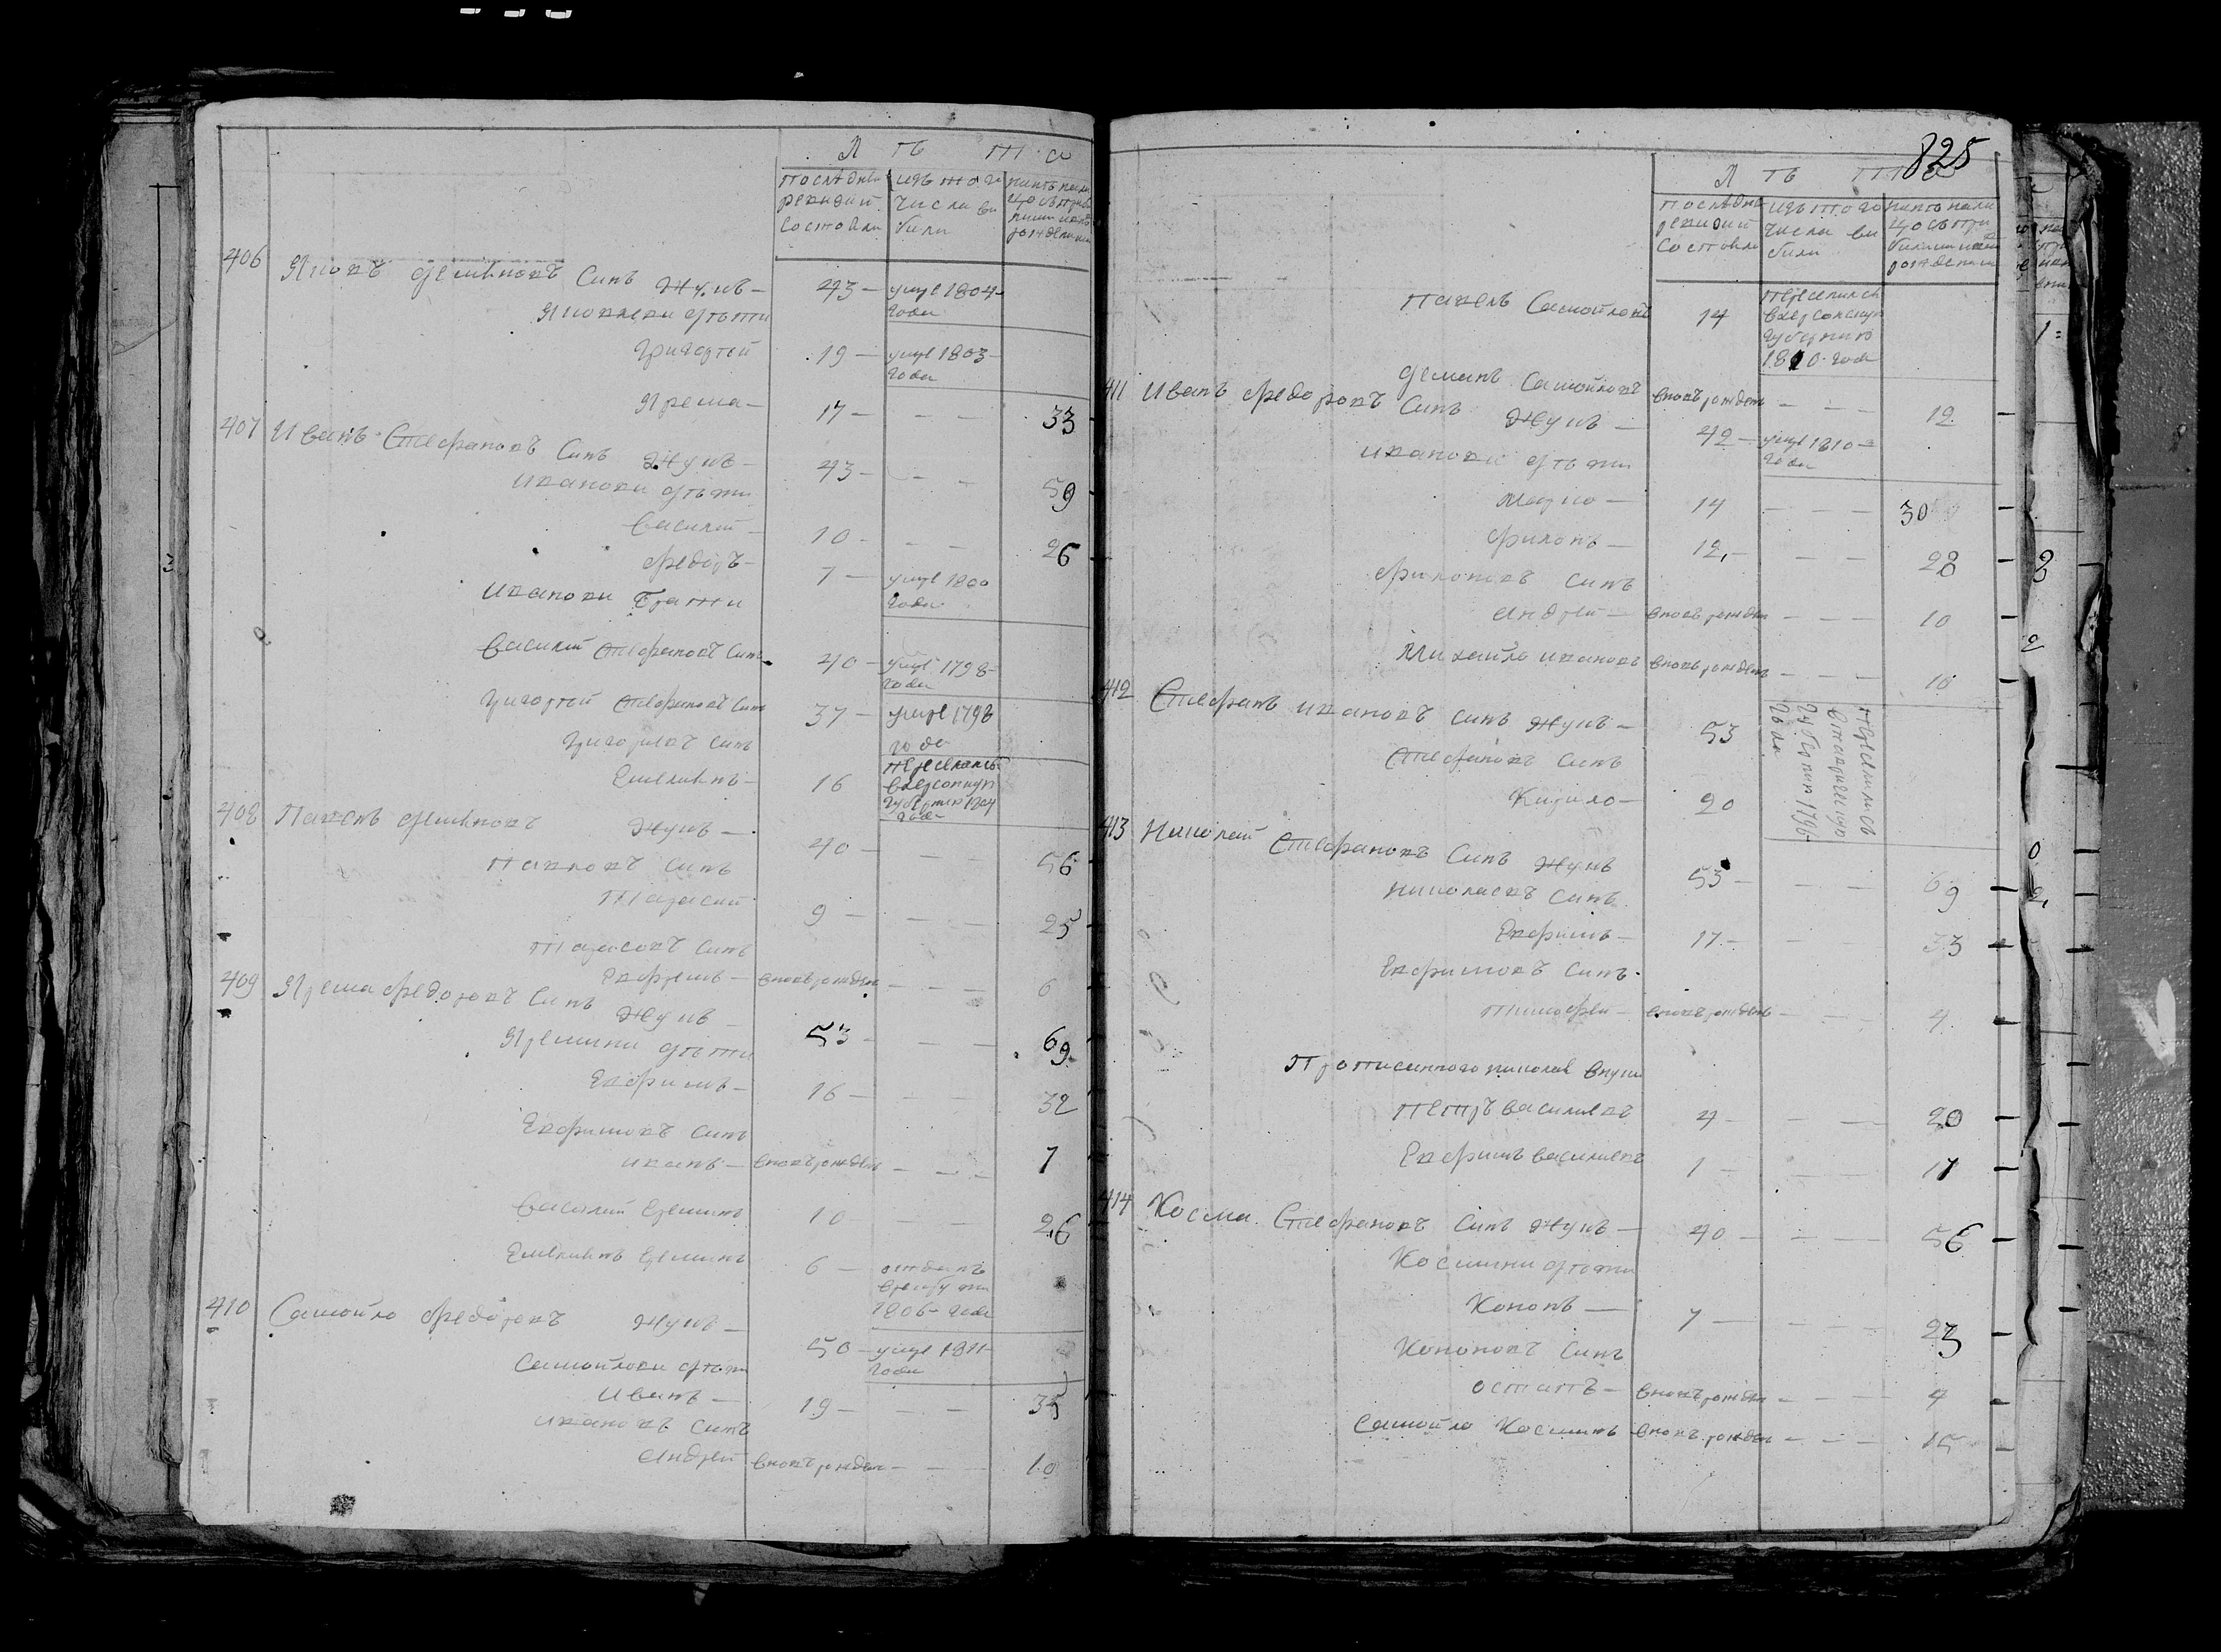 Л ѣ т а
последней ревизии состояли
изъ того числа выбыли
ныне на лицо съ прибылыми и вновь рожденными
406 Яковъ Демяновъ Синъ Жукъ — 43 — умре 1804 года
Яковлеви дѣти
Григорей 19 — умре 1803 года
Ярема — 17 — — — 33
407 Иванъ Стефановъ Синъ Жукъ — 43 — — — 59
Иванови дѣти
Василий — 10 — — — 26
Федоръ — 7 — умре 1800 года
Иванови Брати
Василий Стефановъ Синъ 40 — умре 1798 года
Григорей Стефановъ Синъ 37 — умре 1798 года
Григориевъ Синъ
Емелиянъ — 16 переселилсь въ херсонскую губернию 1804 года
408 Павелъ Демяновъ Жукъ — 40 — — — 56
Павловъ Синъ
Тарасий 9 — — — 25
Тарасовъ Синъ
Евфремъ — вновь рожден — — — 6
409 Ярема Федоровъ Синъ Жукъ — 53 — — — 69
Яремини дѣти
Евфимъ — 16 — — — 32
Евфимовъ Синъ
Иванъ — вновь рожден — — — 7
Василий Ереминъ 10 — — — 26
Емелиянъ Ереминъ 6 — отданъ врекруты 1806 года
410 Самойло Федоровъ Жукъ — 50 — умре 1811 года
Самойлови дѣти
Иванъ — 19 — — — 35
Ивановъ Синъ
Андрей вновь рожден — — — 10
825
Л ѣ т а
последней ревизии состояли
изъ того числа выбыли
ныне на лицо съ прибылыми и вновь рожденными
Павелъ Самойловъ 14 переселилсь въ херсонскую губернию 1810 года
Демянъ Самойловъ вновь рожден — — — 12
411 Иванъ Федоровъ Синъ Жукъ — 42 — умре 1810 года
Иванови дѣти
Марко — 14 — — — 30
Филонъ — 12 — — — 28
Филоновъ Синъ
Андрей — вновь рожден — — — 10
Михайло Ивановъ вновь рожден — — — 10
412 Стефанъ Ивановъ Синъ Жукъ — 53
Переселились губернию 1796 года
Стефановъ Синъ
Кирило — 20
413 Николай Стефановъ Синъ Жукъ 53 — — — 69
Николаевъ Синъ
Евфимъ — 17 — — — 33
Евфимовъ Синъ
Тимофей — вновь рожден — — — 4
Прописанного николая внуки
Петръ Василиевъ 4 — — — 20
Евфимъ Василиевъ 1 — — — 17
414 Косма Стефановъ Синъ Жукъ — 40 — — — 56
Космини дѣти
Кононъ — 7 — — — 23
Кононовъ Синъ
Остапъ — вновь рожден — — — 4
Самойло Косминъ вновь рожден — — — 15